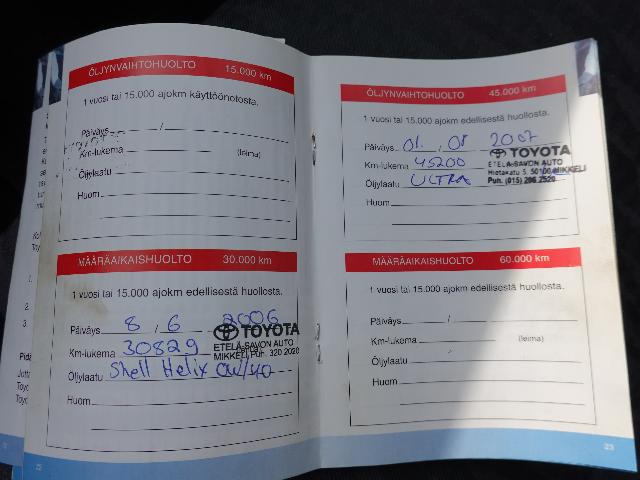 ÖLJYNVAIHTOHUOLTO 15.000 km
1 vuosi tai 15.000 ajokm käyttöönotosta.
Päiväys / 
Km-lukema (leima)
Öljylaatu
Huom
MÄÄRÄAIKAISHUOLTO 30.000 km
1 vuosi tai 15.000 ajokm edellisestä huollosta.
Päiväys 8 , 6 2006
TOYOTA
Km-lukema 30829
ETELÄ-SAVON AUTO
MIKKELI, Puh. 320 2020
Öljylaatu Shell Helix 0W/40
Huom
22
ÖLJYNVAIHTOHUOLTO 45.000 km
1 vuosi tai 15.000 ajokm edellisestä huollosta.
Päiväys 01. 08 2007
TOYOTA
Km-lukema 45200
ETELÄ-SAVON AUTO
Hietakatu 5, 50100 MIKKELI
Öljylaatu ULTRA
Puh. (015) 206 2520
Huom
MÄÄRÄAIKAISHUOLTO 60.000 km
1 vuosi tai 15.000 ajokm edellisestä huollosta.
Päiväys /
Km-lukema (leima)
Öljylaatu
Huom
23